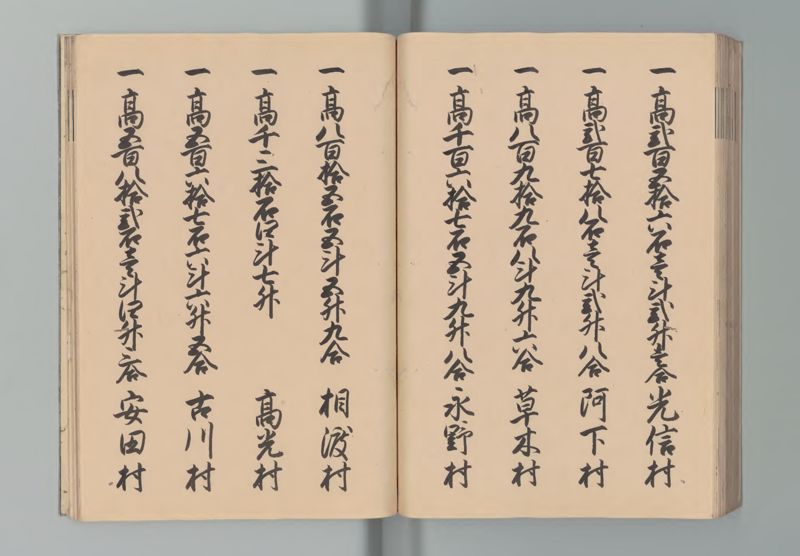 一高弐百五拾六石壱斗弐升壱合光信村
一高弐百七拾八石壱斗弐升八合 阿下村
一高八百九拾九石八斗九升六合 草木村
一高千百六拾七石五斗九升八合 永野村
一高八百拾五石五斗五升九合 相渡村
一高千二拾石四斗七升 高光村
一高五百六拾七石六斗六升五合 古川村
一高五百八拾弐石壱斗四升六合 安田村